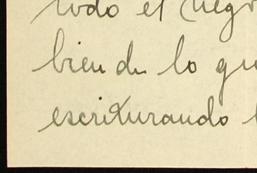 todo el negro
bien de lo qu
escriturando